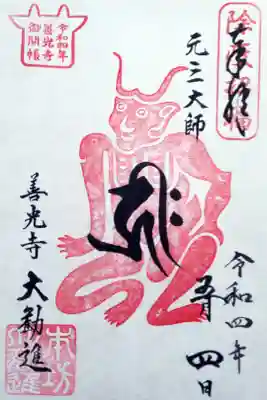 奉拝
元三大師
令和四年
善光寺
御開帳
令和四年
五月四日
善光寺
大勧進
本坊
大勧進